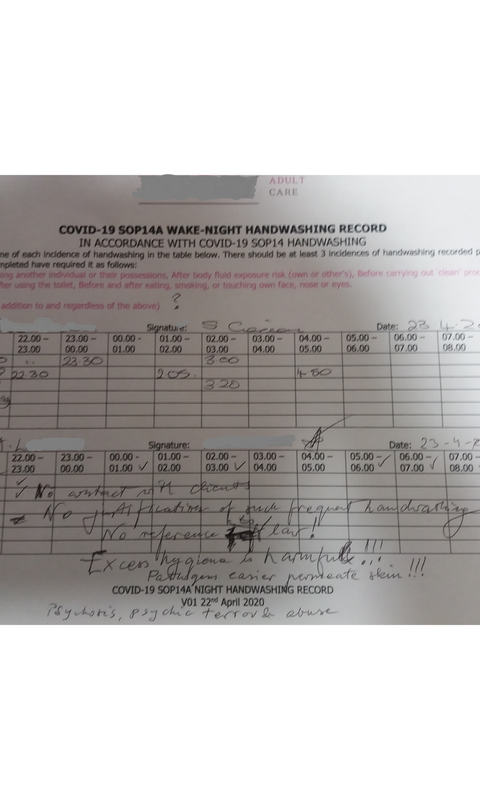 ADULT
CARE
COVID-19 SOP14A WAKE-NIGHT HANDWASHING RECORD
IN ACCORDANCE WITH COVID-19 SOP14 HANDWASHING
me of each incidence of handwashing in the table below. There should be at least 3 incidences of handwashing recorded p
mpleted have required it as follows:
ong another individual or their possessions, After body fluid exposure risk (own or other's), Before carrying out 'clean' proc
fter using the toilet, Before and after eating, smoking, or touching own face, nose or eyes.
?
addition to and regardless of the above)
Signature: S Date: 23.4.2
22.00 – 23.00 – 00.00 - 01.00 – 02.00 – 03.00 – 04.00 – 05.00 – 06.00 – 07.00 –
23.00 00.00 01.00 02.00 03.00 04.00 05.00 06.00 07.00 08.00
23.30 3.00
22.30 205 450
3.20
Signature: Date: 23-4-2
22.00 – 23.00 – 00.00 - 01.00 – 02.00 – 03.00 – 04.00 – 05.00 – 06.00 – 07.00 –
23.00 00.00 01.00 ✓ 02.00 03.00 ✓ 04.00 05.00 06.00 ✓ 07.00 ✓ 08.00 ✓
✓ No contact with clients
No justification of such frequent handwashing
No reference law!
Excess hygiene is harmful!!!
Pathogens easier permeate skin!!!
COVID-19 SOP14A NIGHT HANDWASHING RECORD
V01 22nd April 2020
Psychosis, psychic terror & abuse